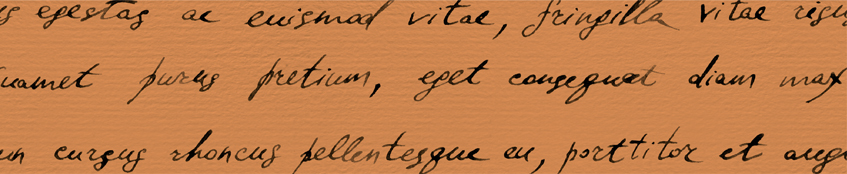 egestas ac euismod vitae, fringilla vitae risu
uamet purus pretium, eget consequat diam max
cursus rhoncus pellentesque eu, porttitor et augu